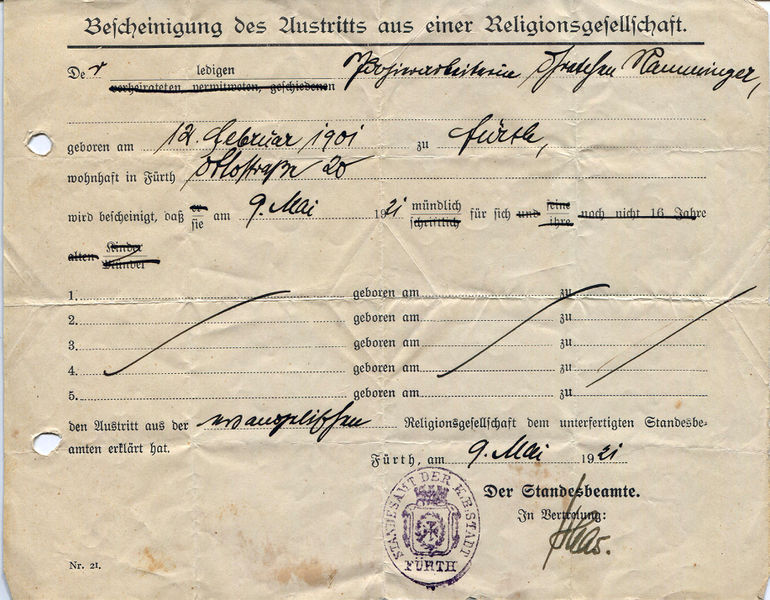 Bescheinigung des Austritts aus einer Religionsgesellschaft.
Der ledigen
verheirateten, verwitweten, geschiedenen
Namminger,
geboren am 12. Februar 1901 zu Fürth,
wohnhaft in Fürth Ottostraße 20
wird bescheinigt, daß er
sie am 9. Mai 1921 mündlich
schriftlich für sich und seine
ihre noch nicht 16 Jahre
alten Kinder
Mündel
1. geboren am zu
2. geboren am zu
3. geboren am zu
4. geboren am zu
5. geboren am zu
den Austritt aus der evangelischen Religionsgesellschaft dem unterfertigten Standesbe-
amten erklärt hat.
Fürth, am 9. Mai 1921
Der Standesbeamte.
In Vertretung:
STANDESAMT DER K.B. STADT
FÜRTH
Nr. 21.